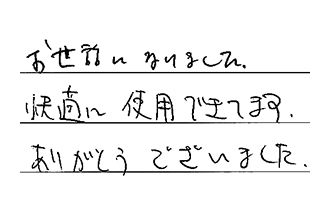 お世話になりました.
快適に使用できてます.
ありがとうございました.